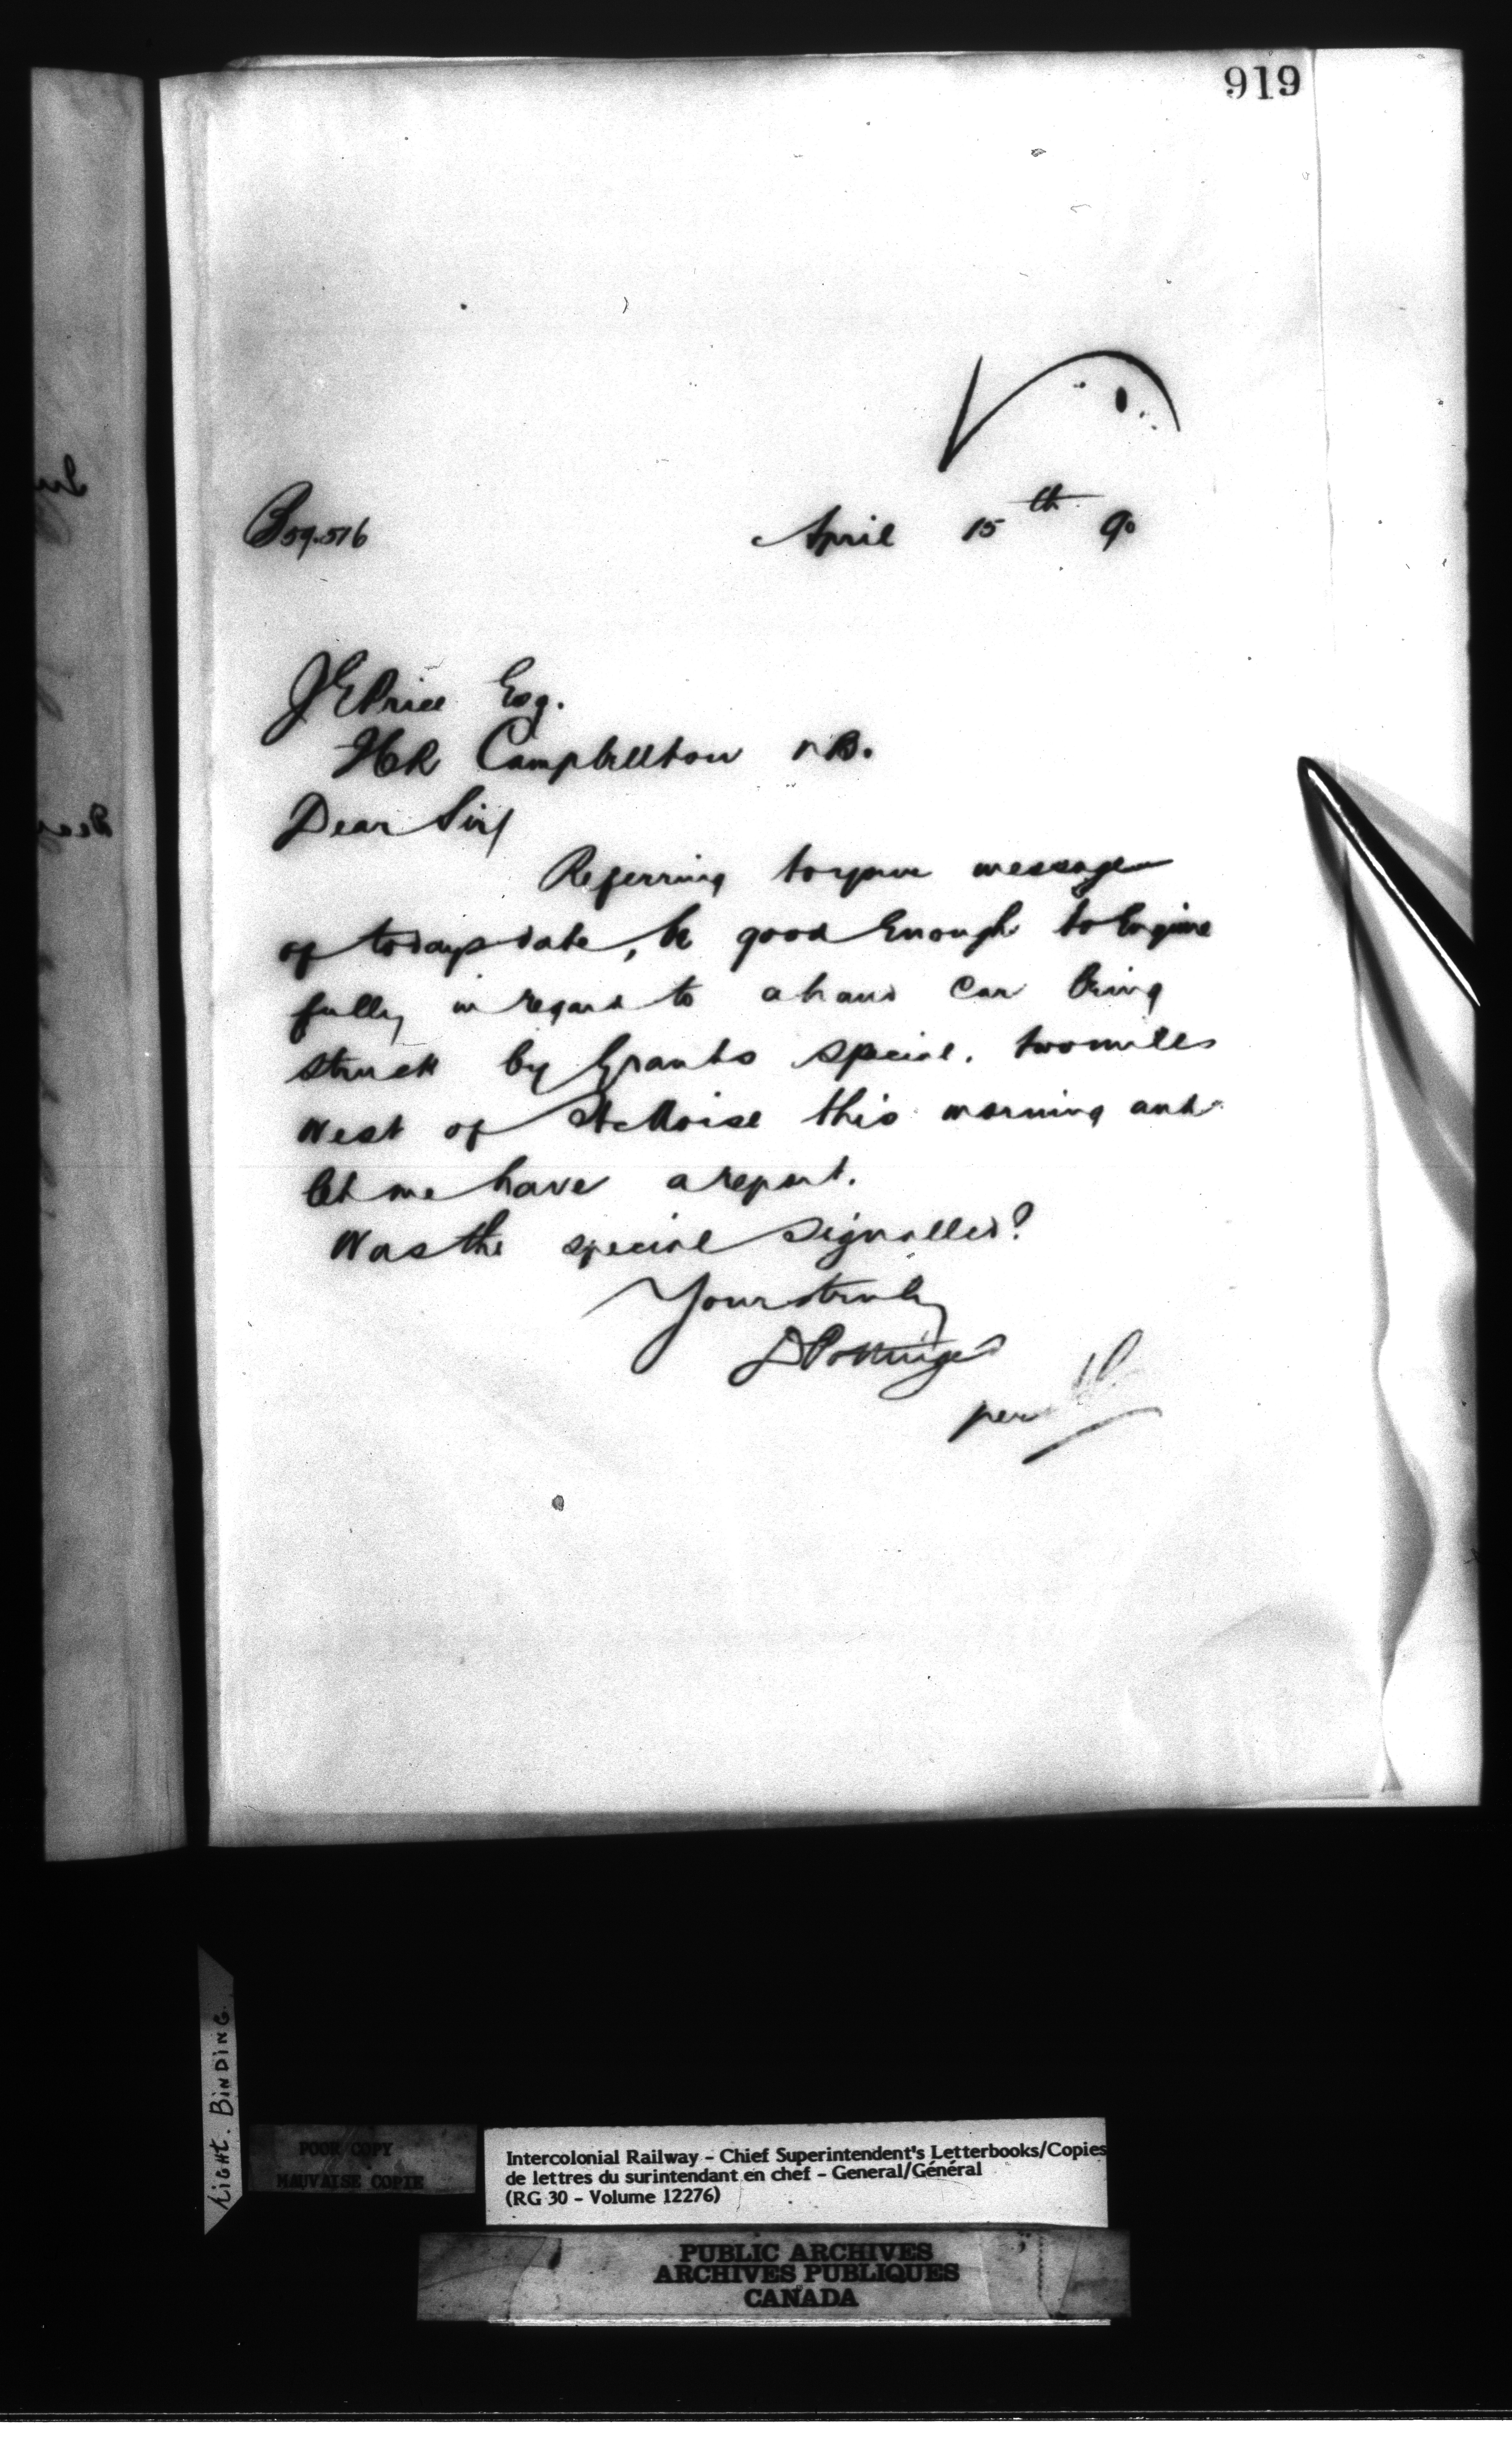 919
B59.516
April 15th 90
J E Price Esq.
ICR Campbellton NB.
Dear Sir/
Referring to your message
of todays date, be good enough to Enquire
fully in regard to a hand car being
struck by Grants special. two miles
West of St Moise this morning and
let me have a report.
Was the special signalled?
Yours truly
D Pottinger
per
Light. BINDING.
POOR COPY
MAUVAISE COPIE
Intercolonial Railway - Chief Superintendent's Letterbooks/Copies
de lettres du surintendant en chef - General/Général
(RG 30 - Volume 12276)
PUBLIC ARCHIVES
ARCHIVES PUBLIQUES
CANADA